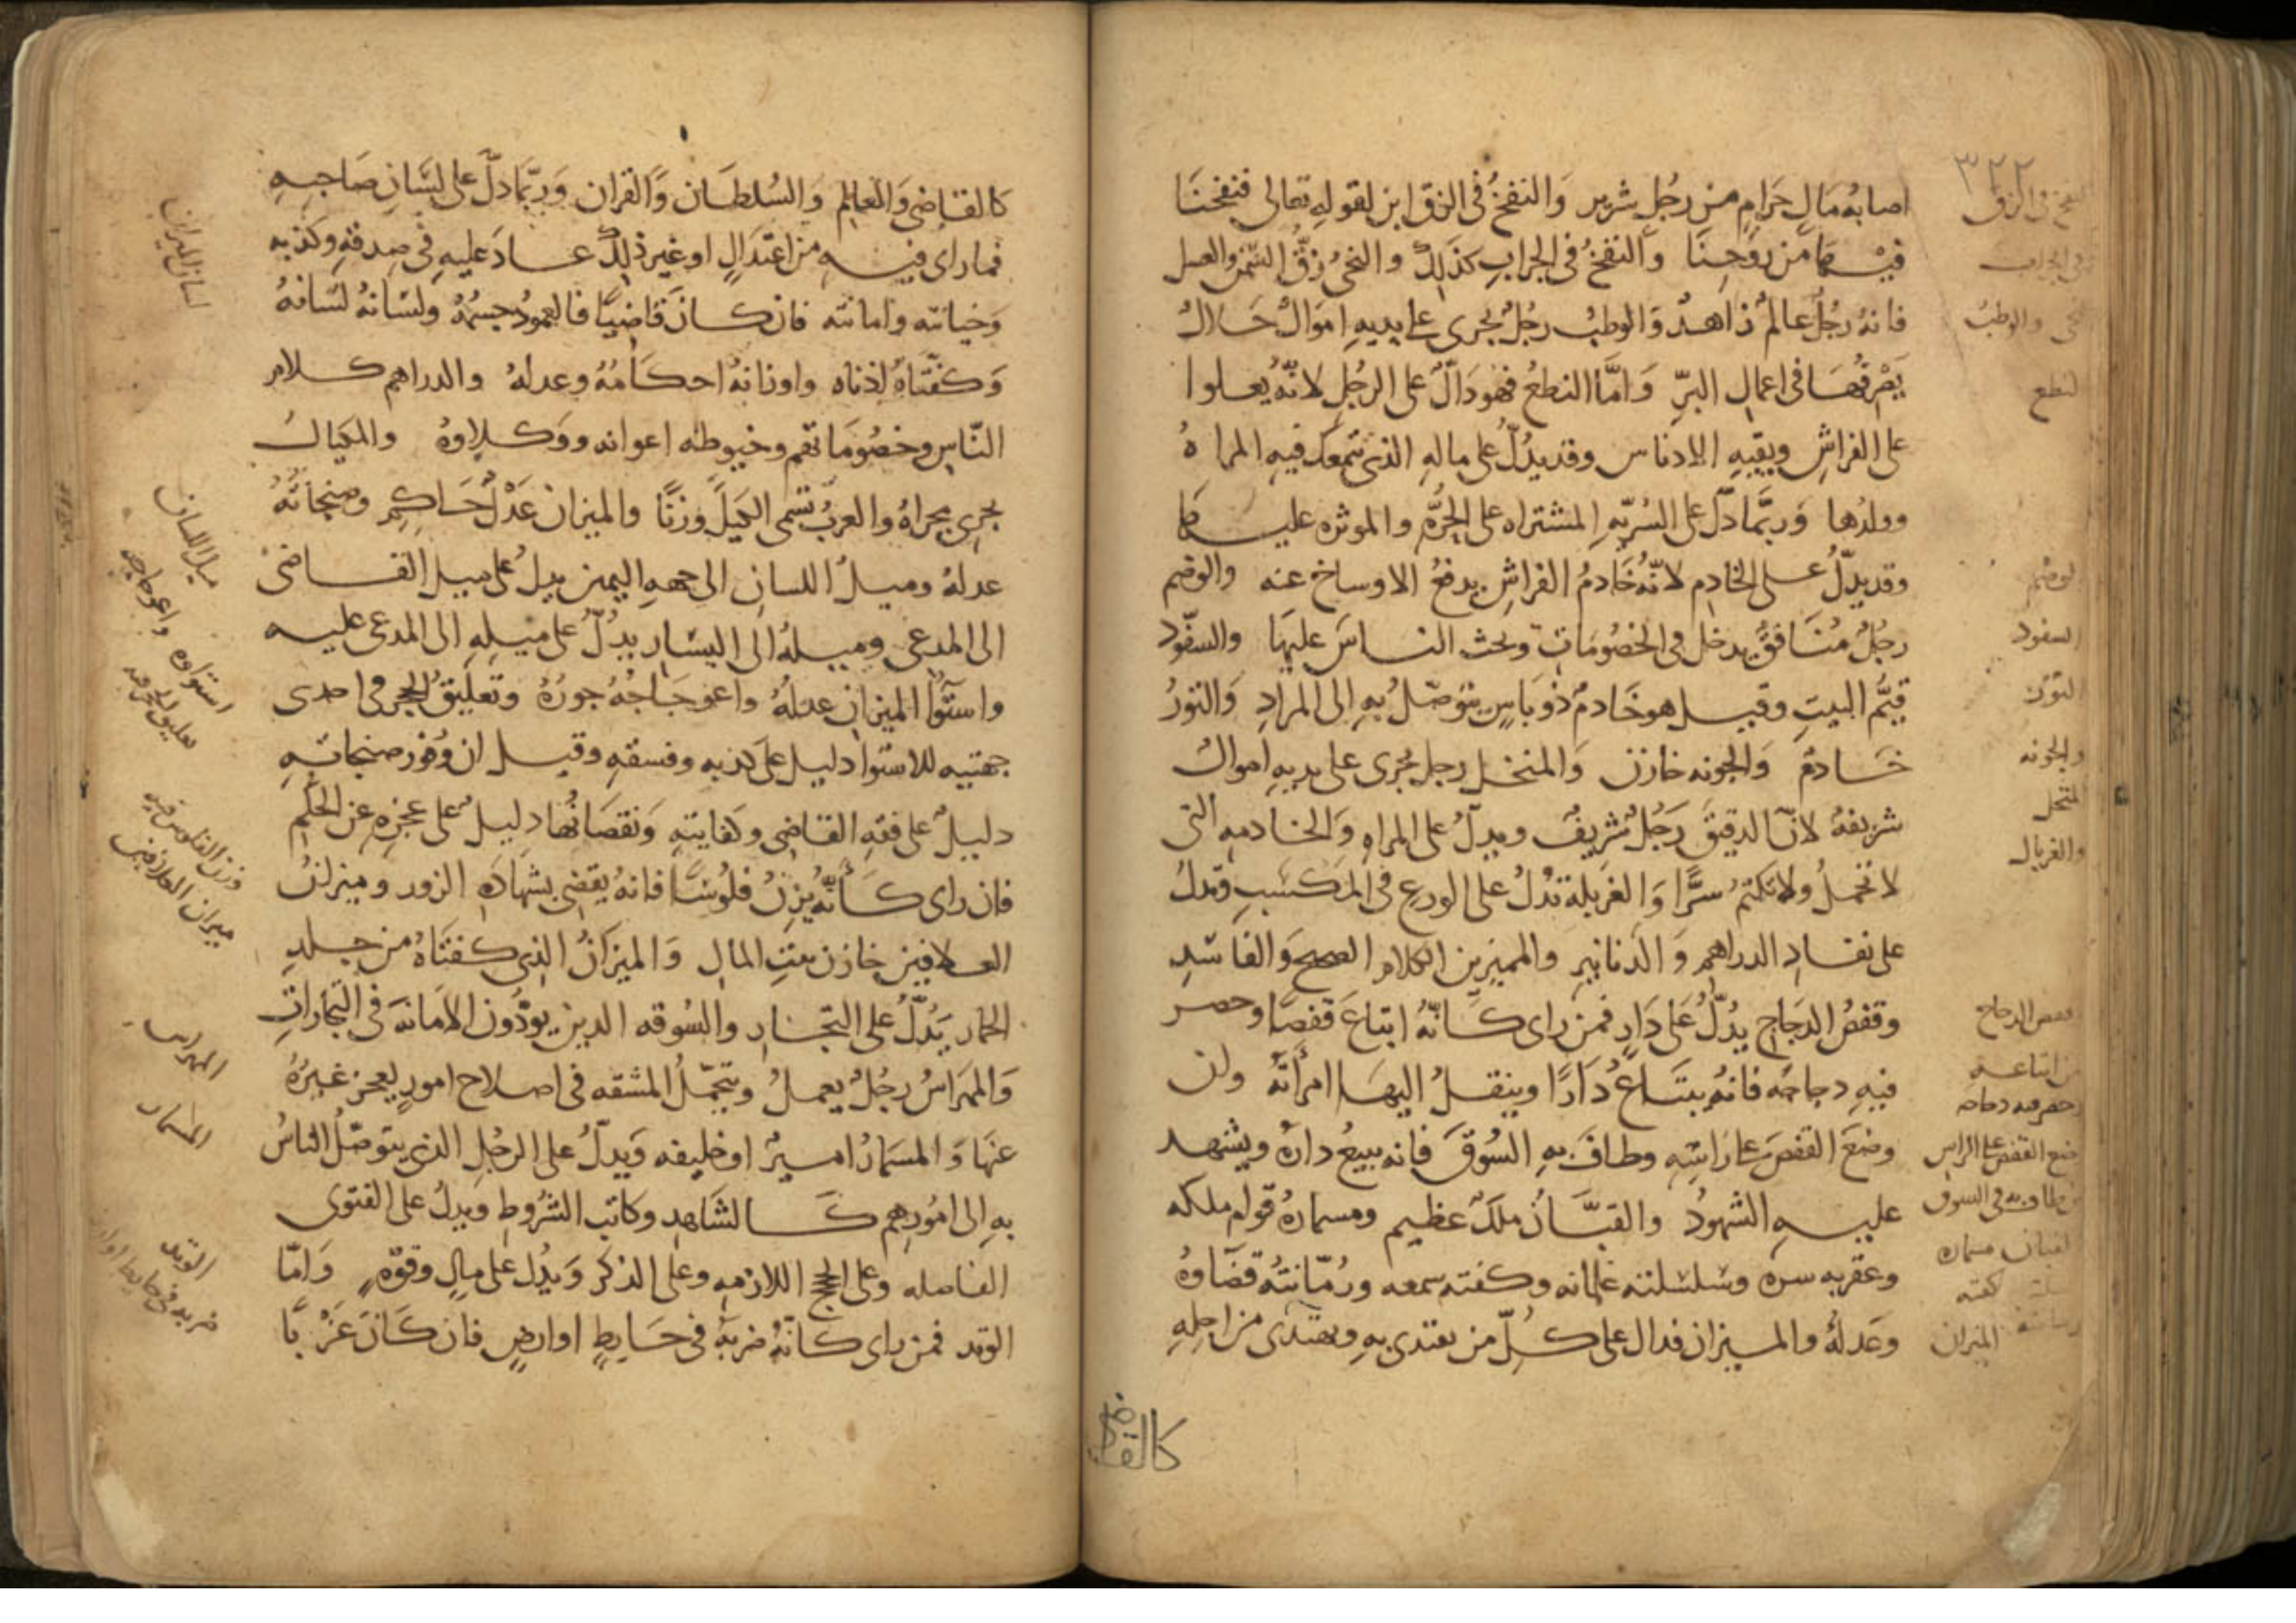 ٣٢٢
اصابه مَالٍ حَرَامٍ من رجُلٍ شرير وَالنفخُ فى الزق ابن لقوله تعالى فنفخنَا
فيهَا من روُحِنَا والنفخُ فى الجرابِ كذَلِكَ والنحىُ زقُّ السّمن والعسل
فانهُ رجُلٌ عالمٌ زاهدٌ وَالوطبُ رجُلٌ يجرى على يديهِ اموَالٌ حَلالٌ
يَصْرفُهَا فى اعمال البرّ وَامَّا النطعُ فهو دَالٌّ على الرجُلِ لانّهُ يعلوا
على الفراشِ ويقيهِ الادناس وقد يدُلُّ على مالهِ الذى تتمعك فيهِ المراهُ
وولدُها وَربَّمَا دَلّ على السُريّهِ المشتراه على الحُرَّهِ والموثره عليها
وقد يدلُّ على الخادم لانّهُ خَادمُ الفراشِ يدفعُ الاوساخ عنه والوضم
رجُلٌ مُنَافقٌ يدخل فى الخصُومَاتِ ويحث الناسَ عليهَا والسفّود
قيَّمُ البيتِ وقيل هو خَادمٌ ذو بَاسٍ يتوَصّلُ بهِ إلى المرادِ وَالتورُ
خَادمٌ وَالجونه خازن وَالمنخل رجل يجرى على يديهِ اموالٌ
شريفهٌ لانّ الدقيقَ رَجُلٌ شريفٌ ويدلُّ على المراهِ وَالخادمهِ التى
لا تحملُ ولا تكتمُ سرًّا وَالغربلة تدُلُ على الورعِ فى المكسَبِ وتدلُ
على نفادِ الدراهمِ وَالدنانيرِ والمميز بين الكلامِ الصحيحِ وَالفاسَدِ
وقفصُ الدجَاجِ يدُلُّ عَلى دَارٍ فمن راى كانّهُ ابتاعَ قفصًا وحصر
فيهِ دجاجَه فانهُ يبتَاعُ دَارًا وينقلُ اليهَا امرأتَه وان
وضعَ القفصَ على رَاسِهِ وطافَ بهِ السُوقَ فانه يبيعُ دارهُ ويشهد
عليهِ الشهودُ والقبَّانُ ملكٌ عظيم ومسمارهُ قوام ملكه
وعقربه سره وسَلسَلته غلمانه وكفته سمعه ورُمّانتهُ قضَاوهُ
وعَدلهُ والميزان فدال على كُلّ من يقتدى بهِ ويهتدى من اجلِهِ
كالقاضى
النفخ فى الزق
فى الجراب
والوطبُ
النطع
الوضم
السفود
التور
والجونه
المنخل
والغربال
قفص الدجاج
ابتاعه
وحصر فيه دجاجه
وضع القفص على الراس
وطاف به فى السوق
القبان مسماره
كفته
الميزان
كالقاضى وَالعالم وَالسُلطَان وَالقران وَربّمَا دلّ على لسَانِ صَاحبهِ
فما راى فيهِ من اعتدَالٍ او غير ذلِكَ عادَ عليهِ فى صدقهِ وكذبهِ
وَخيانته وامانته فان كانَ قاضيًا فالعمُود جسمُهُ ولسَانهُ لسَانهُ
وَكفّتاهُ اذناه واوزانهُ احكَامُهُ وعدلهُ والدراهم كلام
النّاسِ وخصُومَاتهُم وخيوطه اعوانه ووكلاوهُ والمكيالُ
يجرى مجراهُ والعربُ تسَمى الكيَلَ وزنًا والميزان عَدْلٌ حَاكِمٌ وصنجَاتُهُ
عدلهُ وميلُ اللسانِ الى جههِ اليمين يدلُ على ميل القاضى
الى المدعى وميلهُ الى اليسَارِ يدُلُّ على ميلهِ الى المدعى عليه
واستوَاُ الميزانِ عدلهُ واعوجَاجُهُ جورُهُ وتعليقُ الحجر فى احدى
جهتيه للاستوا دليل على كذبهِ وفسقهِ وقيل ان وُفور صنجاتهِ
دليلٌ على فقهِ القاضى وكفايتهِ وَنقصَانُها دليلٌ على عجزهِ عن الحُكمِ
فان راى كَأنَّهُ يزِنُ فلُوسًا فانهُ يقضى بشهادَهِ الزور وميزانُ
العلافينِ خازن بيت المالِ وَالميزَانُ الذى كفتَاهُ من جلدِ
الحمار يَدُلُّ على التجّارِ والسُوقه الذين يودُّون الامَانهَ فى التّجاراتِ
وَالمهرَاسُ رجُلٌ يعملُ ويتحمّلُ المشقه فى اصلاح امورٍ يعجز غيرُهُ
عنهَا وَالمسَمارُ اميرٌ او خليفه وَيدلُّ على الرجُلِ الذى يتوصّلُ الناسُ
بهِ الى امُورهم كالشَاهدِ وكاتب الشرُوطِ ويدلُ على الفتوى
الفاصله وعلى الحجج اللازمهِ وعلى الذكر وَيدُل على مالٍ وقوّهٍ وَامّا
الوتد فمن راى كانّهُ ضربهُ فى حَايطٍ او ارضٍ فان كَانَ عَزَبًا
لسان الميزان
ميل اللسان
استواوه واعوجاجه
تعليق الحجر فيه
وزن الفلوس فيه
ميزان العلافين
المهراس
المسمار
الوتد
ضربه فى حايط او ارض